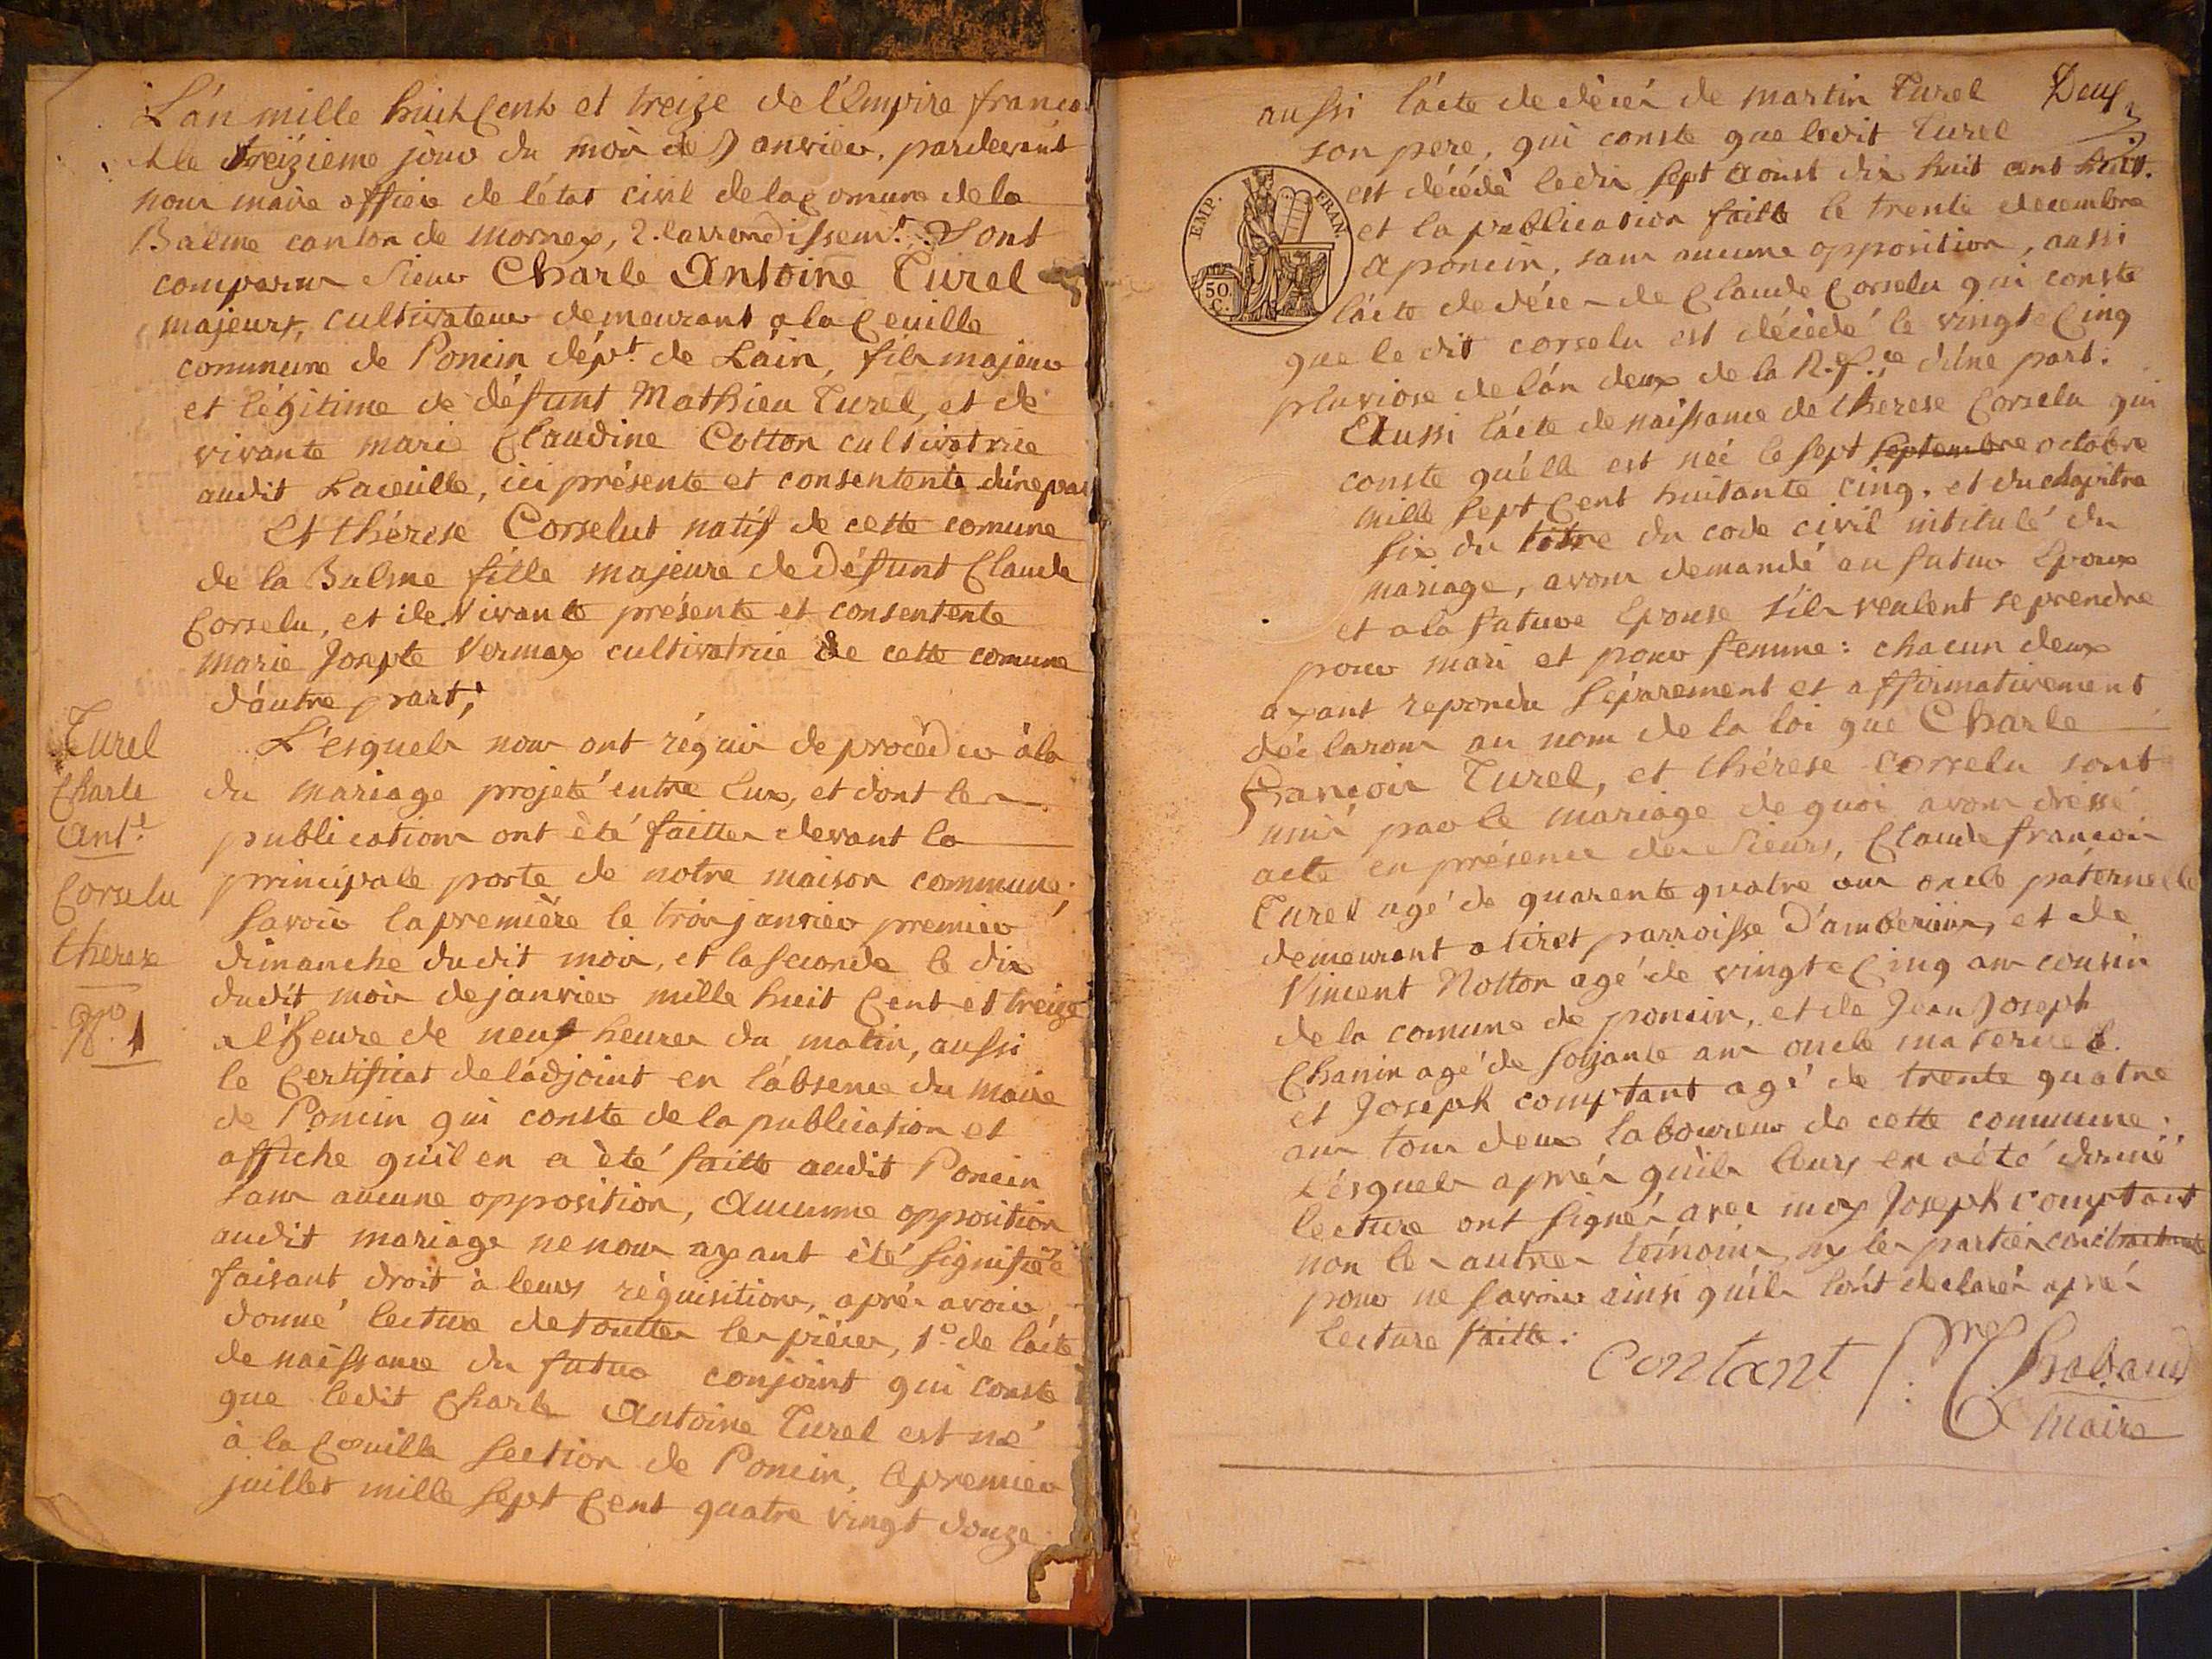 L'an mille huit Cent et treize de l'Empire franco
& le treizieme jour du mois de Janvier, pardevant
nous maire officié de l'état civil de la Comune de la
Balme canton de Mornay, 2. larrondissemt. Sont
comparus Sieur Charle Antoine Turel
majeurs, cultivateur demeurant a la Ceuille
commune de Poncin dépt. de L'ain, fils majeur
et légitime de défunt Mathieu Turel, et de
vivante marie Claudine Cotton cultivatrice
audit Laceuille, ici présente et consentente d'une part
Et thérese Corselut natif de cette comune
de la Balme fille majeure de Défunt Claude
Corselu, et de Vivante présente et consentente
marie Josepte Vermax cultivatrice de cette comune
d'autre part;
Turel
Charle
Ant.
Corselu
therese
No. 1
L'esquels nous ont réquis de procéder à la
du mariage projeté entre Eux, et dont les
publications ont été faittes devant la
principale porte de notre maison commune;
Savoir la première le trois janvier premier
dimanche dudit mois, et la seconde le dix
dudit mois de janvier mille huit Cent et treize
a l'heure de neuf heures du matin, aussi
le Certificat de l'adjoint en l'absence du maire
de Poncin qui conste de la publication et
affiche qu'il en a été faitte audit Poncin
sans aucune opposition, Aucunne opposition
audit mariage ne nous ayant été signifiée
faisant droit à leurs réquisitions, aprés avoir
donné lecture de touttes les piéces, 1o. de l'acte
de naissance du futur conjoint qui conste
que ledit Charle Antoine Turel est né
à la Ceuille Section de Poncin, le premier
juillet mille sept Cent quatre vingt douze
Deux
aussi l'acte de décés de martin Turel
son pere, qui conste que ledit Turel
est décédé le dix sept Aoust dix huit cent huit.
et la publication faitte le trente decembre
a poncin, sans aucune opposition, aussi
l'acte de décés de Claude Corselu qui conste
que le dit corselu est décédé le vingt Cinq
pluviose de l'an deux de la R.f.ce d'une part.
EMP. FRAN.
50 C.
Aussi l'acte de naissance de therese Corselu qui
conste qu'elle est née le sept septembre octobre
mille sept Cent huitante cinq. et du chapitre
six du titre du code civil intitulé du
mariage, avons demandé au futur Epoux
et a la future Epouse s'ils veulent se prendre
pour mari et pour femme: chacun deux
ayant repondu séparement et affirmativement
déclarons au nom de la loi que Charle
françois Turel, et thérese corselu sont
unis par le mariage de quoi avons dressé
acte en présence des Sieurs, Claude françois
Turel agé de quarente quatre ans oncle páternelle
demeurant a tiret parroisse d'amberieux, et de
Vincent Notton agé de vingt Cinq ans cousin
de la comune de poncin, et de Jean Joseph
Chanin agé de soixante ans oncle maternel.
et Joseph comptant agé de trente quatre
ans tous deux laboureur de cette commune;
l'ésquels aprés qu'ils leurs en a été donné
lecture ont signés avec moy Joseph comptant
non les autres témoins, ny les parties contractants
pour ne savoir ainsi qu'ils l'ont declarés aprés
lecture faitte.
Contant
Chabaud
Maire